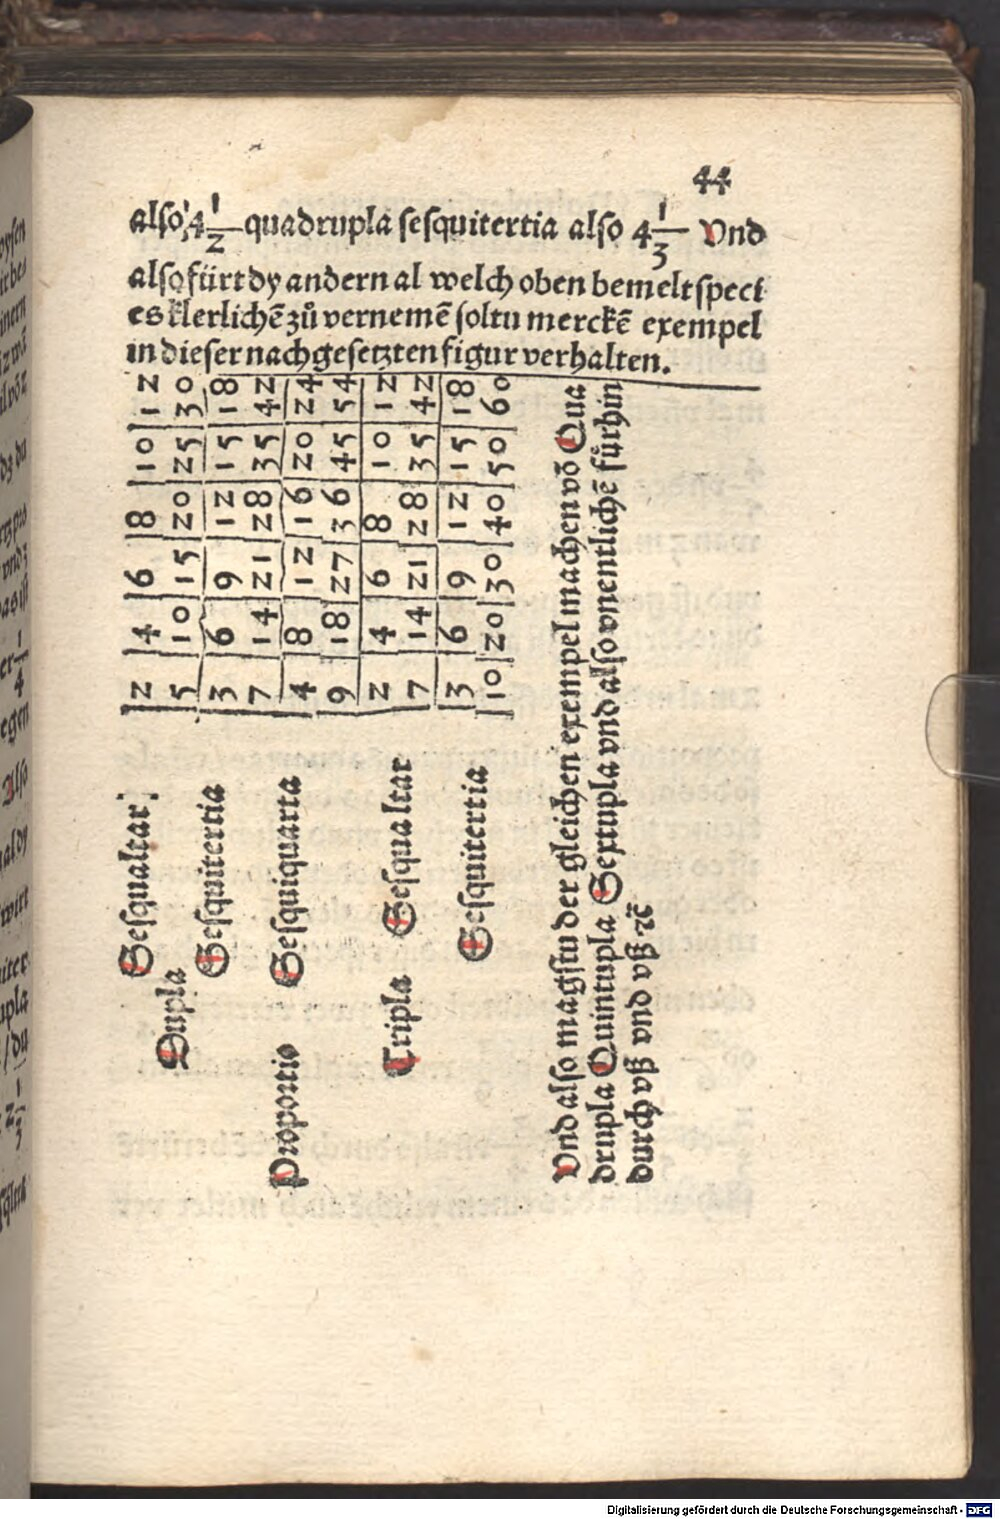 44
also 4 1/2 quadrupla sesquitertia also 4 1/3 Vnd
also fürt dy andern al welch oben bemelt speci
es klerlichē zů vernemē soltu merckē exempel
in dieser nachgesetzten figur verhalten.
Sesqualtar 2 4 6 8 10 12
Dupla 5 10 15 20 25 30
Sesquitertia 3 6 9 12 15 18
7 14 21 28 35 42
Proportio Sesquiquarta 4 8 12 16 20 24
9 18 27 36 45 54
Tripla Sesqualtar 2 4 6 8 10 12
7 14 21 28 35 42
Sesquitertia 3 6 9 12 15 18
10 20 30 40 50 60
Vnd also magstu der gleichen exempel machen vō Qua
drupla Quintupla Sextupla vnd also vnentlichē fürhin
durch vß vnd vß ⁊c̄
Digitalisierung gefördert durch die Deutsche Forschungsgemeinschaft - DFG